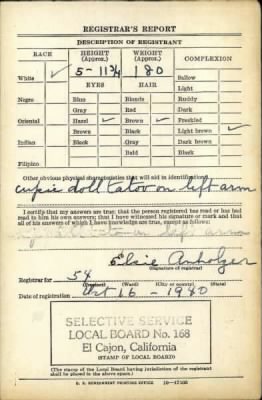 REGISTRAR'S REPORT
DESCRIPTION OF REGISTRANT
RACE HEIGHT (Approx.) WEIGHT (Approx.) COMPLEXION
White ✓ 5-11¾ 180 Sallow
EYES HAIR Light
Negro Blue Blonde Ruddy
Gray Red Dark
Oriental Hazel ✓ Brown ✓ Freckled
Brown Black Light brown ✓
Indian Black Gray Dark brown
Bald Black
Filipino
Other obvious physical characteristics that will aid in identification
cupie doll tatov on left arm
I certify that my answers are true; that the person registered has read or has had
read to him his own answers; that I have witnessed his signature or mark and that
all of his answers of which I have knowledge are true, except as follows:
Elsie Anholzer
(Signature of registrar)
Registrar for 54
(Precinct) (Ward) (City or county) (State)
Date of registration Oct 16 - 1940
SELECTIVE SERVICE
LOCAL BOARD No. 168
El Cajon, California
(STAMP OF LOCAL BOARD)
(The stamp of the Local Board having jurisdiction of the registrant
shall be placed in the above space.)
U. S. GOVERNMENT PRINTING OFFICE 16-17105